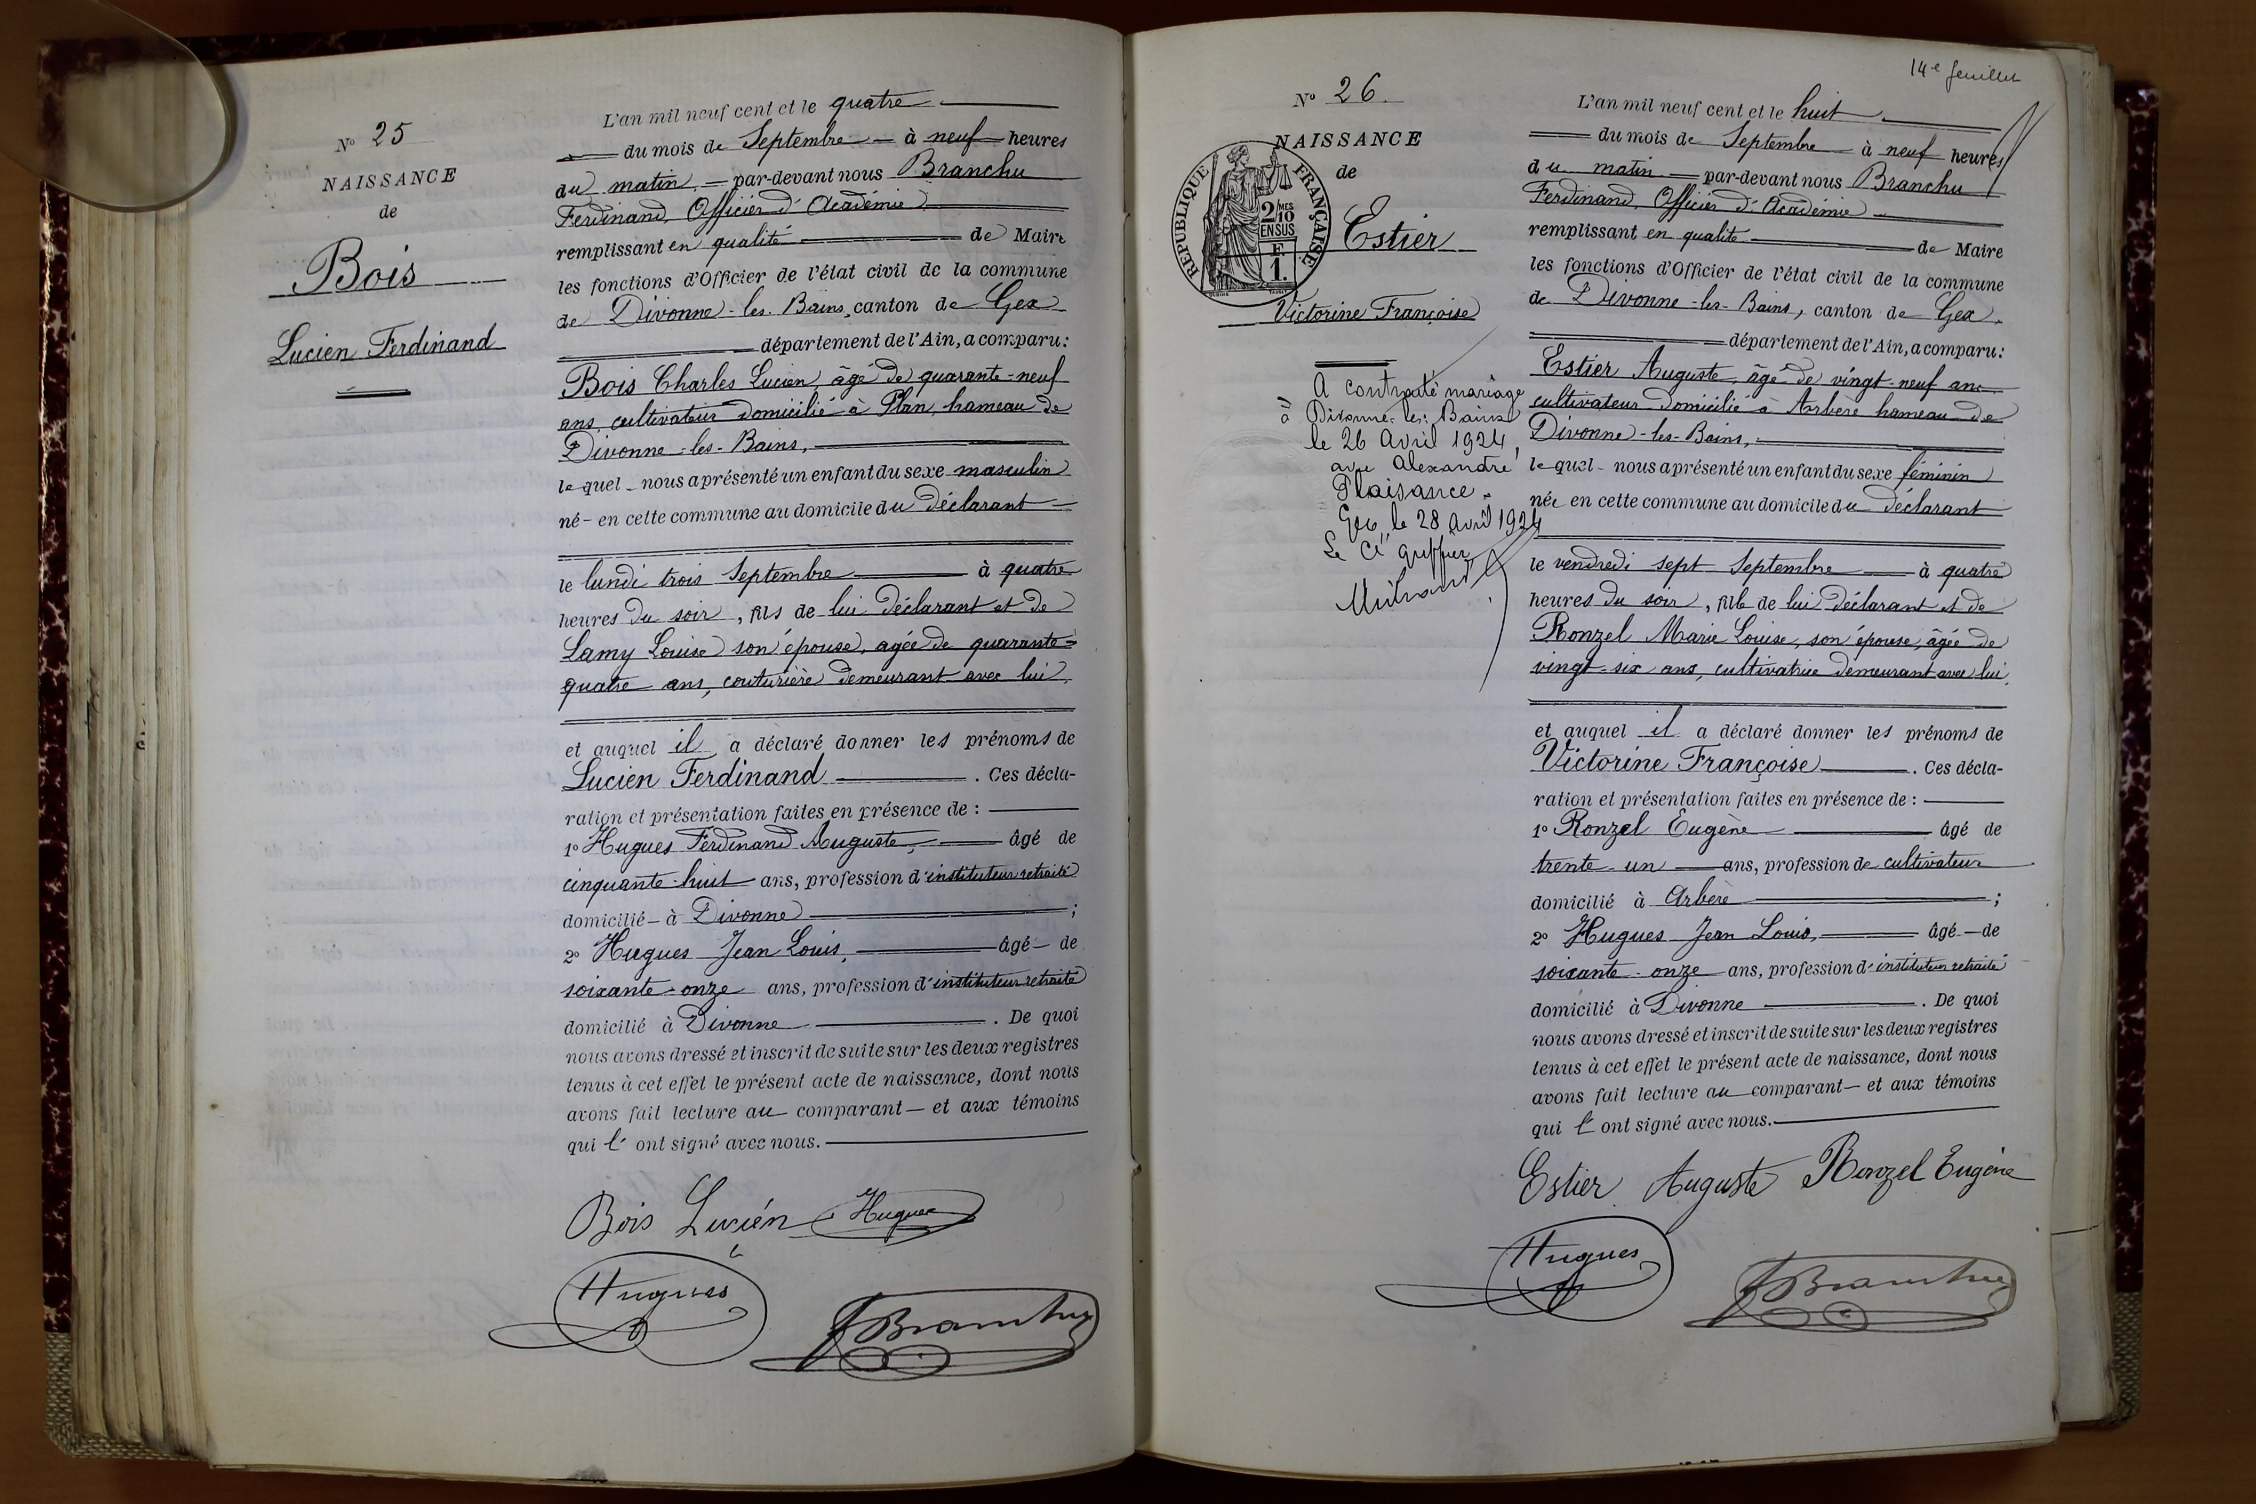 Nº 25
NAISSANCE
de
Bois
Lucien Ferdinand
L'an mil neuf cent et le quatre
du mois de Septembre à neuf heures
du matin, par-devant nous Branchu
Ferdinand, Officier d'Académie
remplissant en qualité de Maire
les fonctions d'Officier de l'état civil de la commune
de Divonne-les-Bains, canton de Gex
département de l'Ain, a comparu:
Bois Charles Lucien, âgé de quarante-neuf
ans, cultivateur domicilié à Plan, hameau de
Divonne-les-Bains,
lequel nous a présenté un enfant du sexe masculin
né en cette commune au domicile du déclarant
le lundi trois Septembre à quatre
heures du soir, fils de lui déclarant et de
Lamy Louise son épouse, agée de quarante-
quatre ans, couturière demeurant avec lui.
et auquel il a déclaré donner les prénoms de
Lucien Ferdinand. Ces décla-
ration et présentation faites en présence de :
1º Hugues Ferdinand Auguste, âgé de
cinquante-huit ans, profession d'instituteur retraité
domicilié à Divonne ;
2º Hugues Jean Louis, âgé de
soixante-onze ans, profession d'instituteur retraité
domicilié à Divonne. De quoi
nous avons dressé et inscrit de suite sur les deux registres
tenus à cet effet le présent acte de naissance, dont nous
avons fait lecture au comparant et aux témoins
qui l'ont signé avec nous.
Bois Lucién Hugues
Hugues
Branchu
14e feuillet
Nº 26.
NAISSANCE
de
RÉPUBLIQUE FRANÇAISE
2 MES
10
EN SUS
F.
1.
Estier
Victorine Françoise
A contracté mariage
à Divonne-les-Bains
le 26 avril 1924,
avec Alexandre
Plaisance.
Gex, le 28 avril 1924
Le Cis greffier
L'an mil neuf cent et le huit
du mois de Septembre à neuf heures
du matin par-devant nous Branchu
Ferdinand, Officier d'Académie
remplissant en qualité de Maire
les fonctions d'Officier de l'état civil de la commune
de Divonne-les-Bains, canton de Gex,
département de l'Ain, a comparu:
Estier Auguste, âgé de vingt-neuf ans
cultivateur domicilié à Arbère hameau de
Divonne-les-Bains,
lequel nous a présenté un enfant du sexe féminin
née en cette commune au domicile du déclarant
le vendredi sept Septembre à quatre
heures du soir, fille de lui déclarant et de
Ronzel Marie Louise, son épouse, âgée de
vingt-six ans, cultivatrice demeurant avec lui,
et auquel il a déclaré donner les prénoms de
Victorine Françoise. Ces décla-
ration et présentation faites en présence de :
1º Ronzel Eugène âgé de
trente-un ans, profession de cultivateur
domicilié à Arbère ;
2º Hugues Jean Louis, âgé de
soixante-onze ans, profession d'instituteur retraité
domicilié à Divonne. De quoi
nous avons dressé et inscrit de suite sur les deux registres
tenus à cet effet le présent acte de naissance, dont nous
avons fait lecture au comparant et aux témoins
qui l'ont signé avec nous.
Estier Auguste Ronzel Eugène
Hugues
Branchu